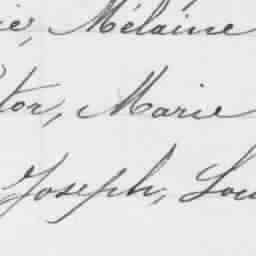 ie, Mélaine
tor, Marie
Joseph, Lou